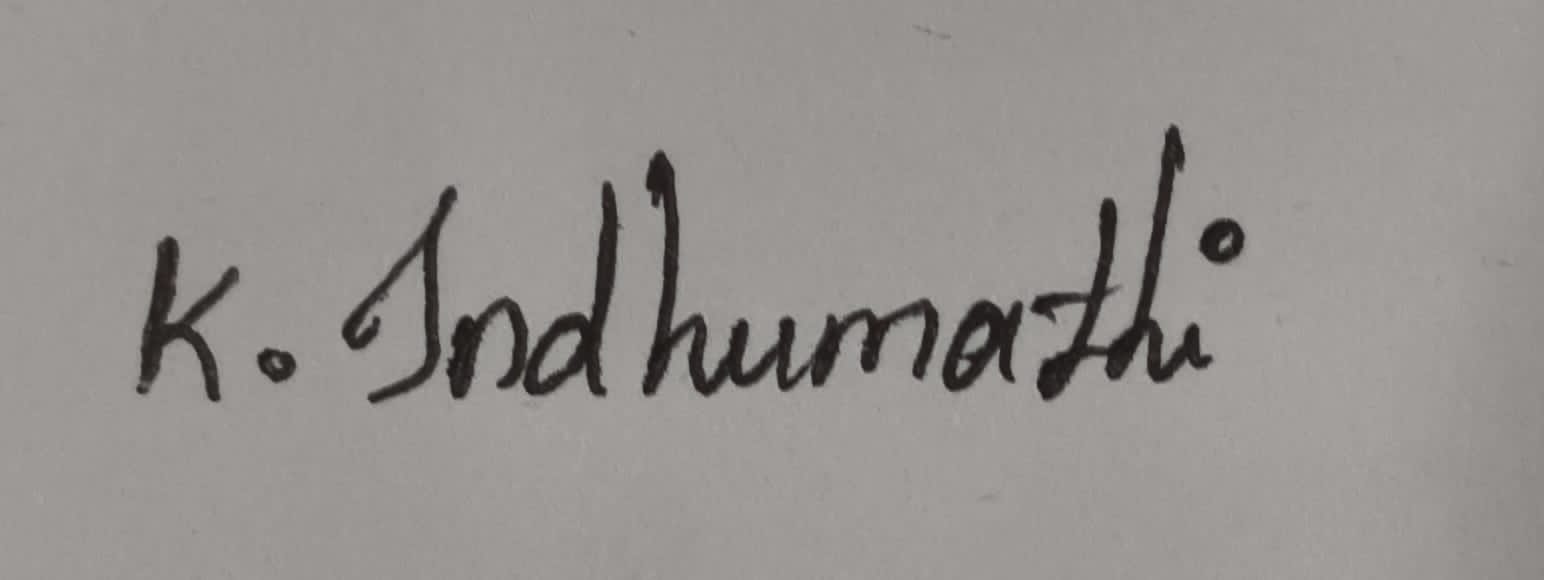 K. Indhumathi